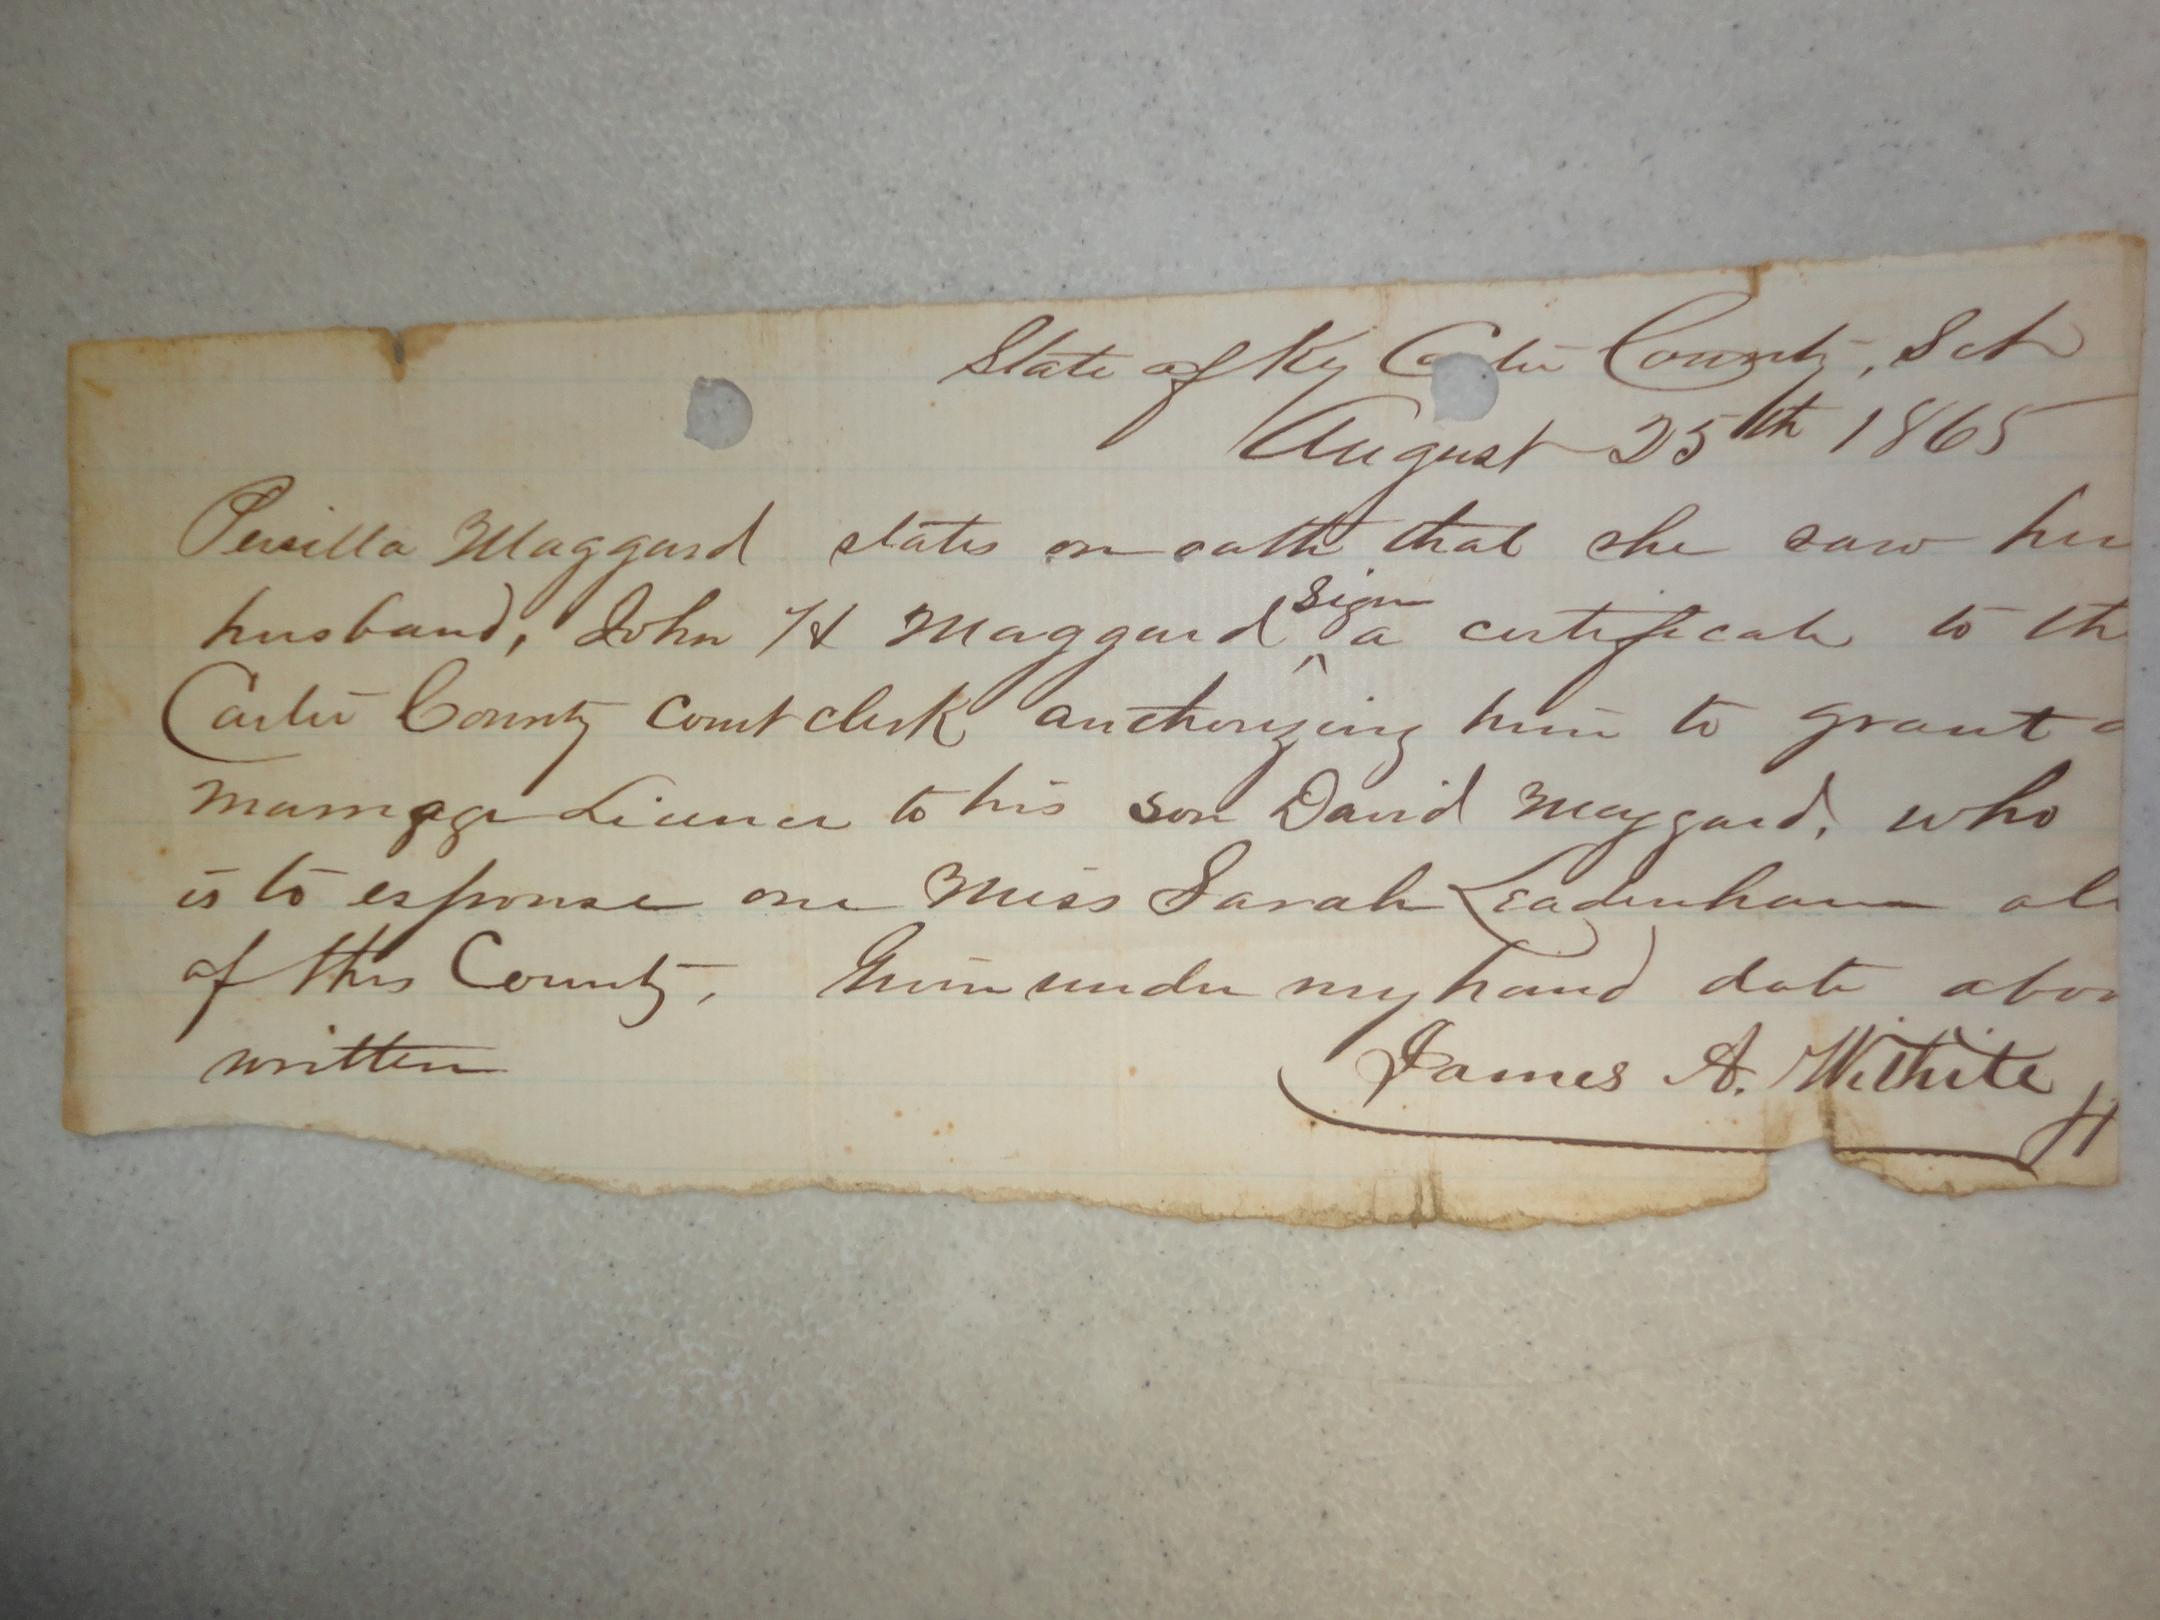 State of Ky Carter County, Sct
August 25th 1865
Percilla Maggard states on oath that she saw her
husband, John H Maggard sign a certificate to th
Carter County court clerk authorizing him to grant a
marriage Licence to his son David Maggard, who
is to espouse one Miss Sarah Leadenham al
of this County, Given under my hand date abov
written
James A. Wilhite